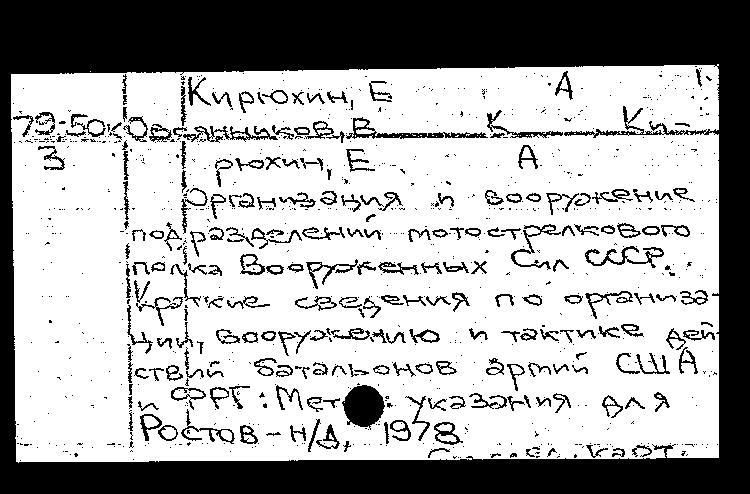 Кирюхин, Е А
79-50к Овсянников, В К Ки-
3 рюхин, Е А
Организация и вооружение
подразделений мотострелкового
полка Вооруженных Сил СССР.
Краткие сведения по организа-
ции, вооружению и тактике дей-
ствий батальонов армий США
и ФРГ: Мет указания для
Ростов-н/Д, 1978
карт.